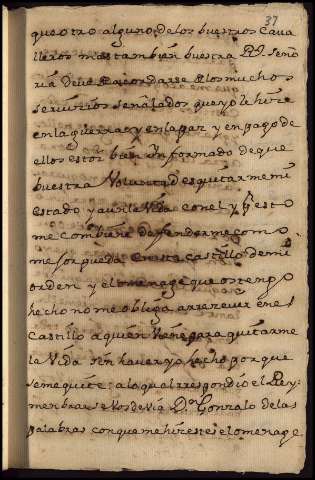 37
que otro alguno de los buestros Cava
lleros mas tambien buestra Rl. Seno
ria deve Acordarse A los muchos
serviçios señalados que yo le hiçe
en la guerra y en la paz y en pago de
ellos estoi bien Ynformado de que
buestra Voluntad es quitarme mi
estado y aun la Vida con el y pr esto
me combiene defenderme como
me sor en este Castillo de mi
orden y el omenage que os tengo
hecho no me obliga a rreçevir en el
Castillo a quien Viene para quitarme
la Vida sin haver yo hecho por que
se me quite: a lo qual rrespondio el Rey
menbrarse Vos devia Dn Gonzalo de las
palabras con que me hiçistes el omenage